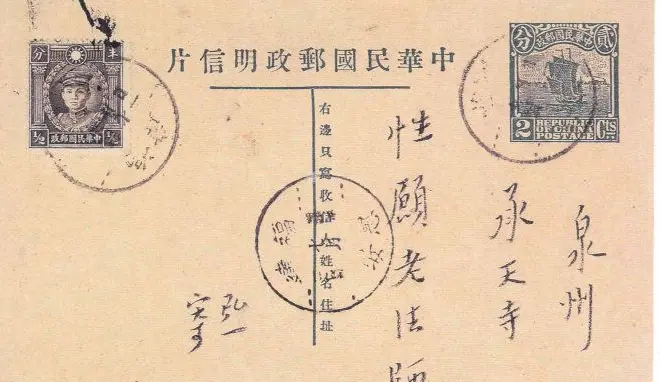 中華民國郵政明信片
貳分
中華民國郵政
2 REPUBLIC OF CHINA POSTAGE Cts
半分
½ 中華民國郵政 ½
泉州
承天寺
性願老法師
右邊只寫收人姓名住址
福建
惠安
弘一